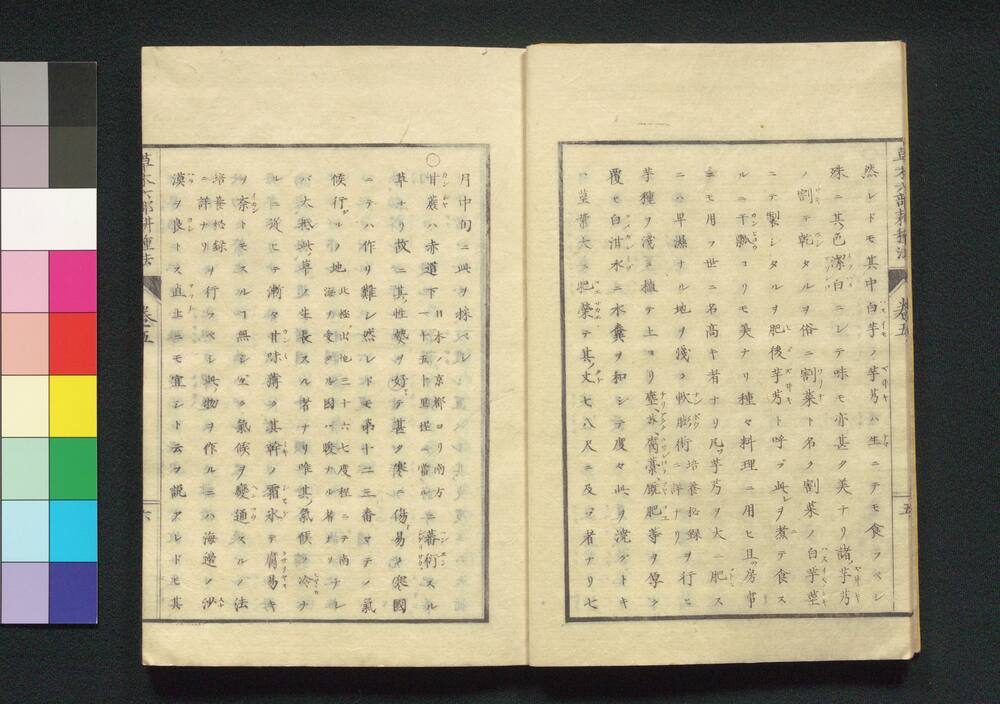 然レドモ其中白芋ノ芋茎ハ生ニテモ食フベシ
殊ニ其色潔白ニシテ味モ亦甚ク美ナリ諸芋茎
ノ割テ乾タルヲ俗ニ割菜ト名ク割菜ノ白芋莖
ニテ製シタルヲ肥後芋茎ト呼ブ此ヲ煮テ食ス
ルニ干瓢ヨリモ美ナリ種々料理ニ用ヒ且房事
ニモ用フ世ニ名高キ者ナリ凡芋茎ヲ大ニ肥ス
ニハ早濕ナル地ヲ淺ク軟膨術 培養秘録ニ詳ナリ ヲ行ヒ
芋種ヲ淺ク植テ土ヨリ塵芥腐藁厩肥等ヲ厚ク
覆ヒ白泔水ニ水糞ヲ和シテ度々此ヲ澆グトキ
ハ莖葉大ニ肥榮テ其丈七八尺ニ及ブ者ナリ七
草木六部耕種法 卷五 五
月中旬ニ此ヲ採ベシ
○甘蔗ハ赤道下 日本ノ京都ヨリ南方一千五十里程ニ當ル ニ蕃衍スル
草ナリ故ニ其性熱ヲ好テ甚ク寒ニ傷易キ寒國
ニテハ作リ難シ然レドモ第十二三番マテノ氣
候行ルノ地 北極出地三十六七度程ニテ南海ヲ受タル國ハ暖ナル者ナリ ナレ
バ大抵此草ノ生長スル者ナリ唯其氣候ノ冷ナ
ルニ從ヒテ漸々甘味薄ク其幹ノ霜氷テ腐易キ
ヲ奈トモスルヿ無シ至ク氣候ヲ變通スルノ法
培養秘録ニ詳ナリ ヲ行フベシ此物ヲ作ルニハ海邊ノ沙
漠ヲ良トス直土ニモ宜シト云フ說アレドモ其
草木六部耕種法 卷五 六